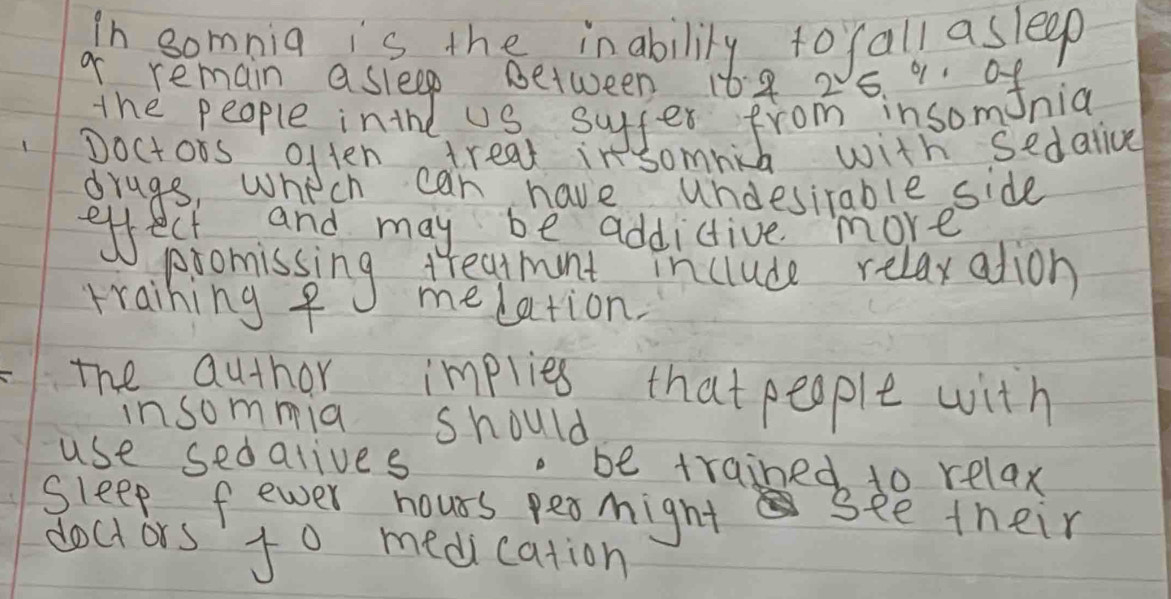 insomnia is the inability to fall asleep
or remain asleep Between 16 & 25 %. of
the people in the US suffer from insomnia
Doctors often treat insomnia with sedative
drugs, which can have undesirable side
effect and may be addictive. more
promissing treatment include relaxation
training & medation.
the author implies that people with
insommia should
use sedatives . be trained to relax
sleep fewer hours per night see their
doctors fo medication